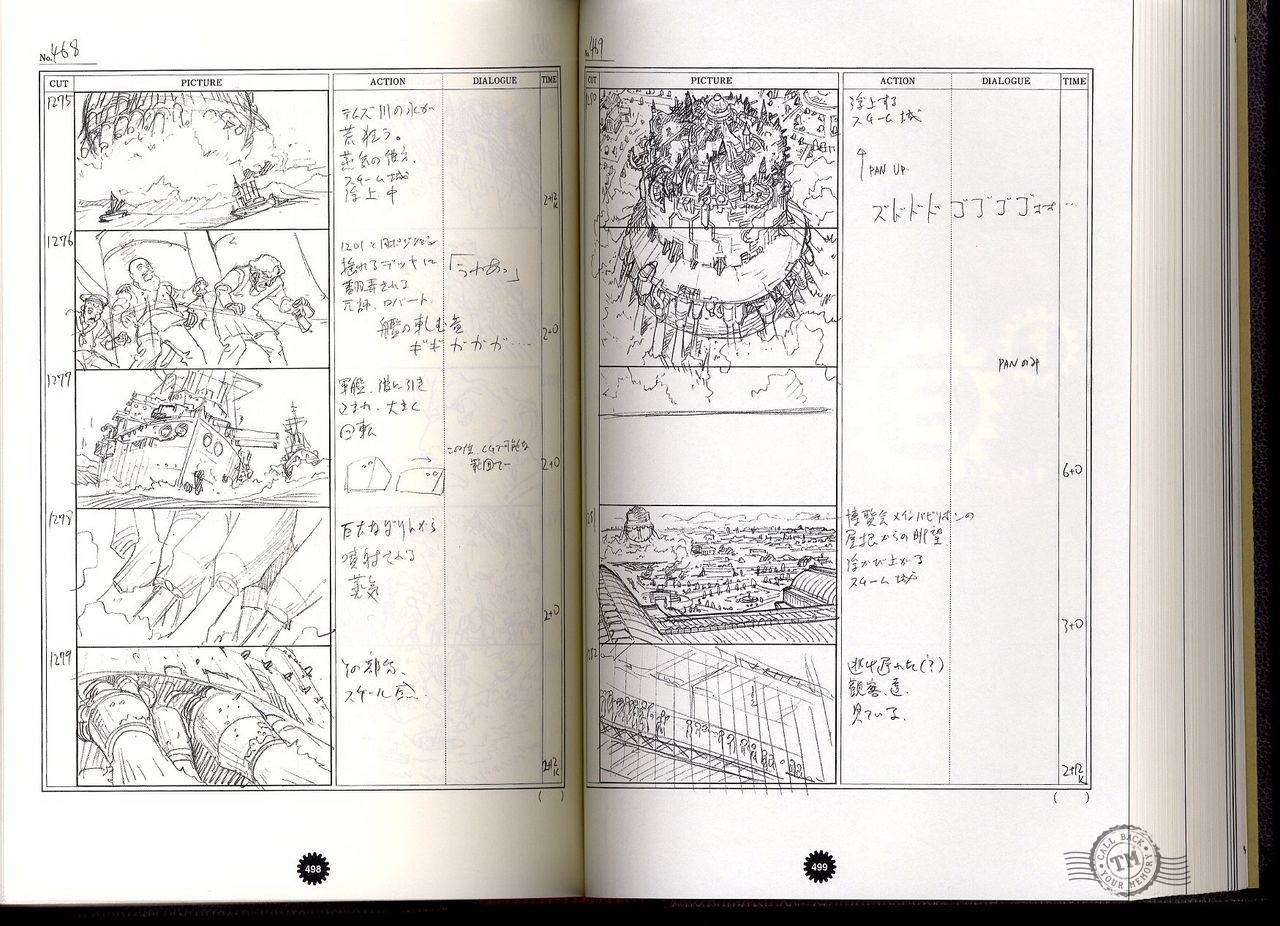 No. 468
CUT PICTURE ACTION DIALOGUE TIME
1275
テムズ川の水が
荒狂う。
蒸気の彼方、
スチーム城
浮上中
2+12
K
1276
1201と同ポジション
揺れるデッキに
翻弄される
元帥、ロバート.
「うわあっ」
艦の軋む音
ギギガガガ‥‥
2+0
1277
軍艦、
大きく
回転
この位、CGで可能な
範囲でー
2+0
1278
巨大なずりんから
噴射される
蒸気
2+0
1279
その部分、
スケール
2+12
K
( )
498
No. 469
CUT PICTURE ACTION DIALOGUE TIME
1280
浮上する
スチーム城
PAN UP.
ズドドドゴゴゴゴォォォ…
PANのみ
6+0
1281
博覧会メインパビリオンの
屋根からの眺望
浮かび上がる
スチーム城
3+0
1282
逃げ遅れた(?)
観客達
見ている.
2+12
K
( )
499
CALL BACK
TM
YOUR MEMORY